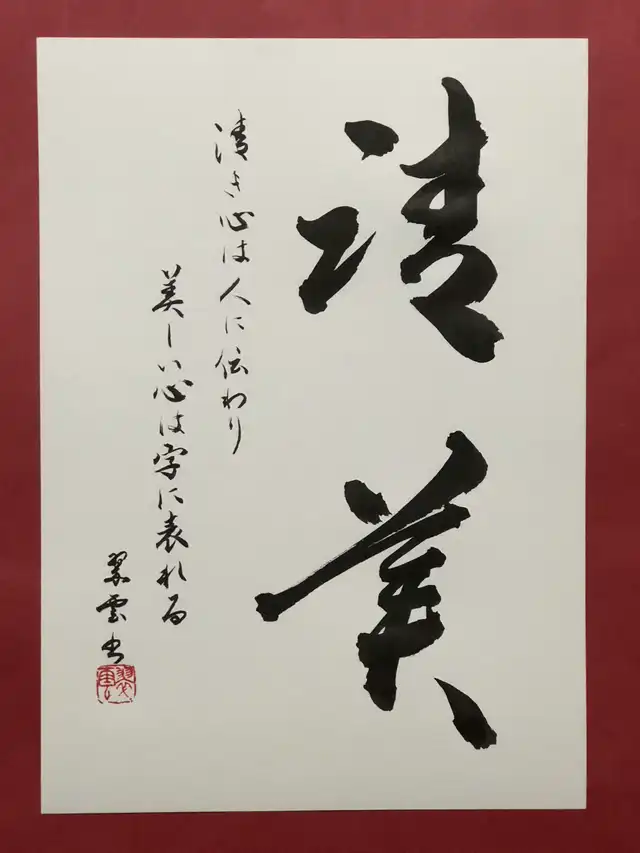 清美
清き心は人に伝わり
美しい心は字に表れる
翠雲書
翠雲